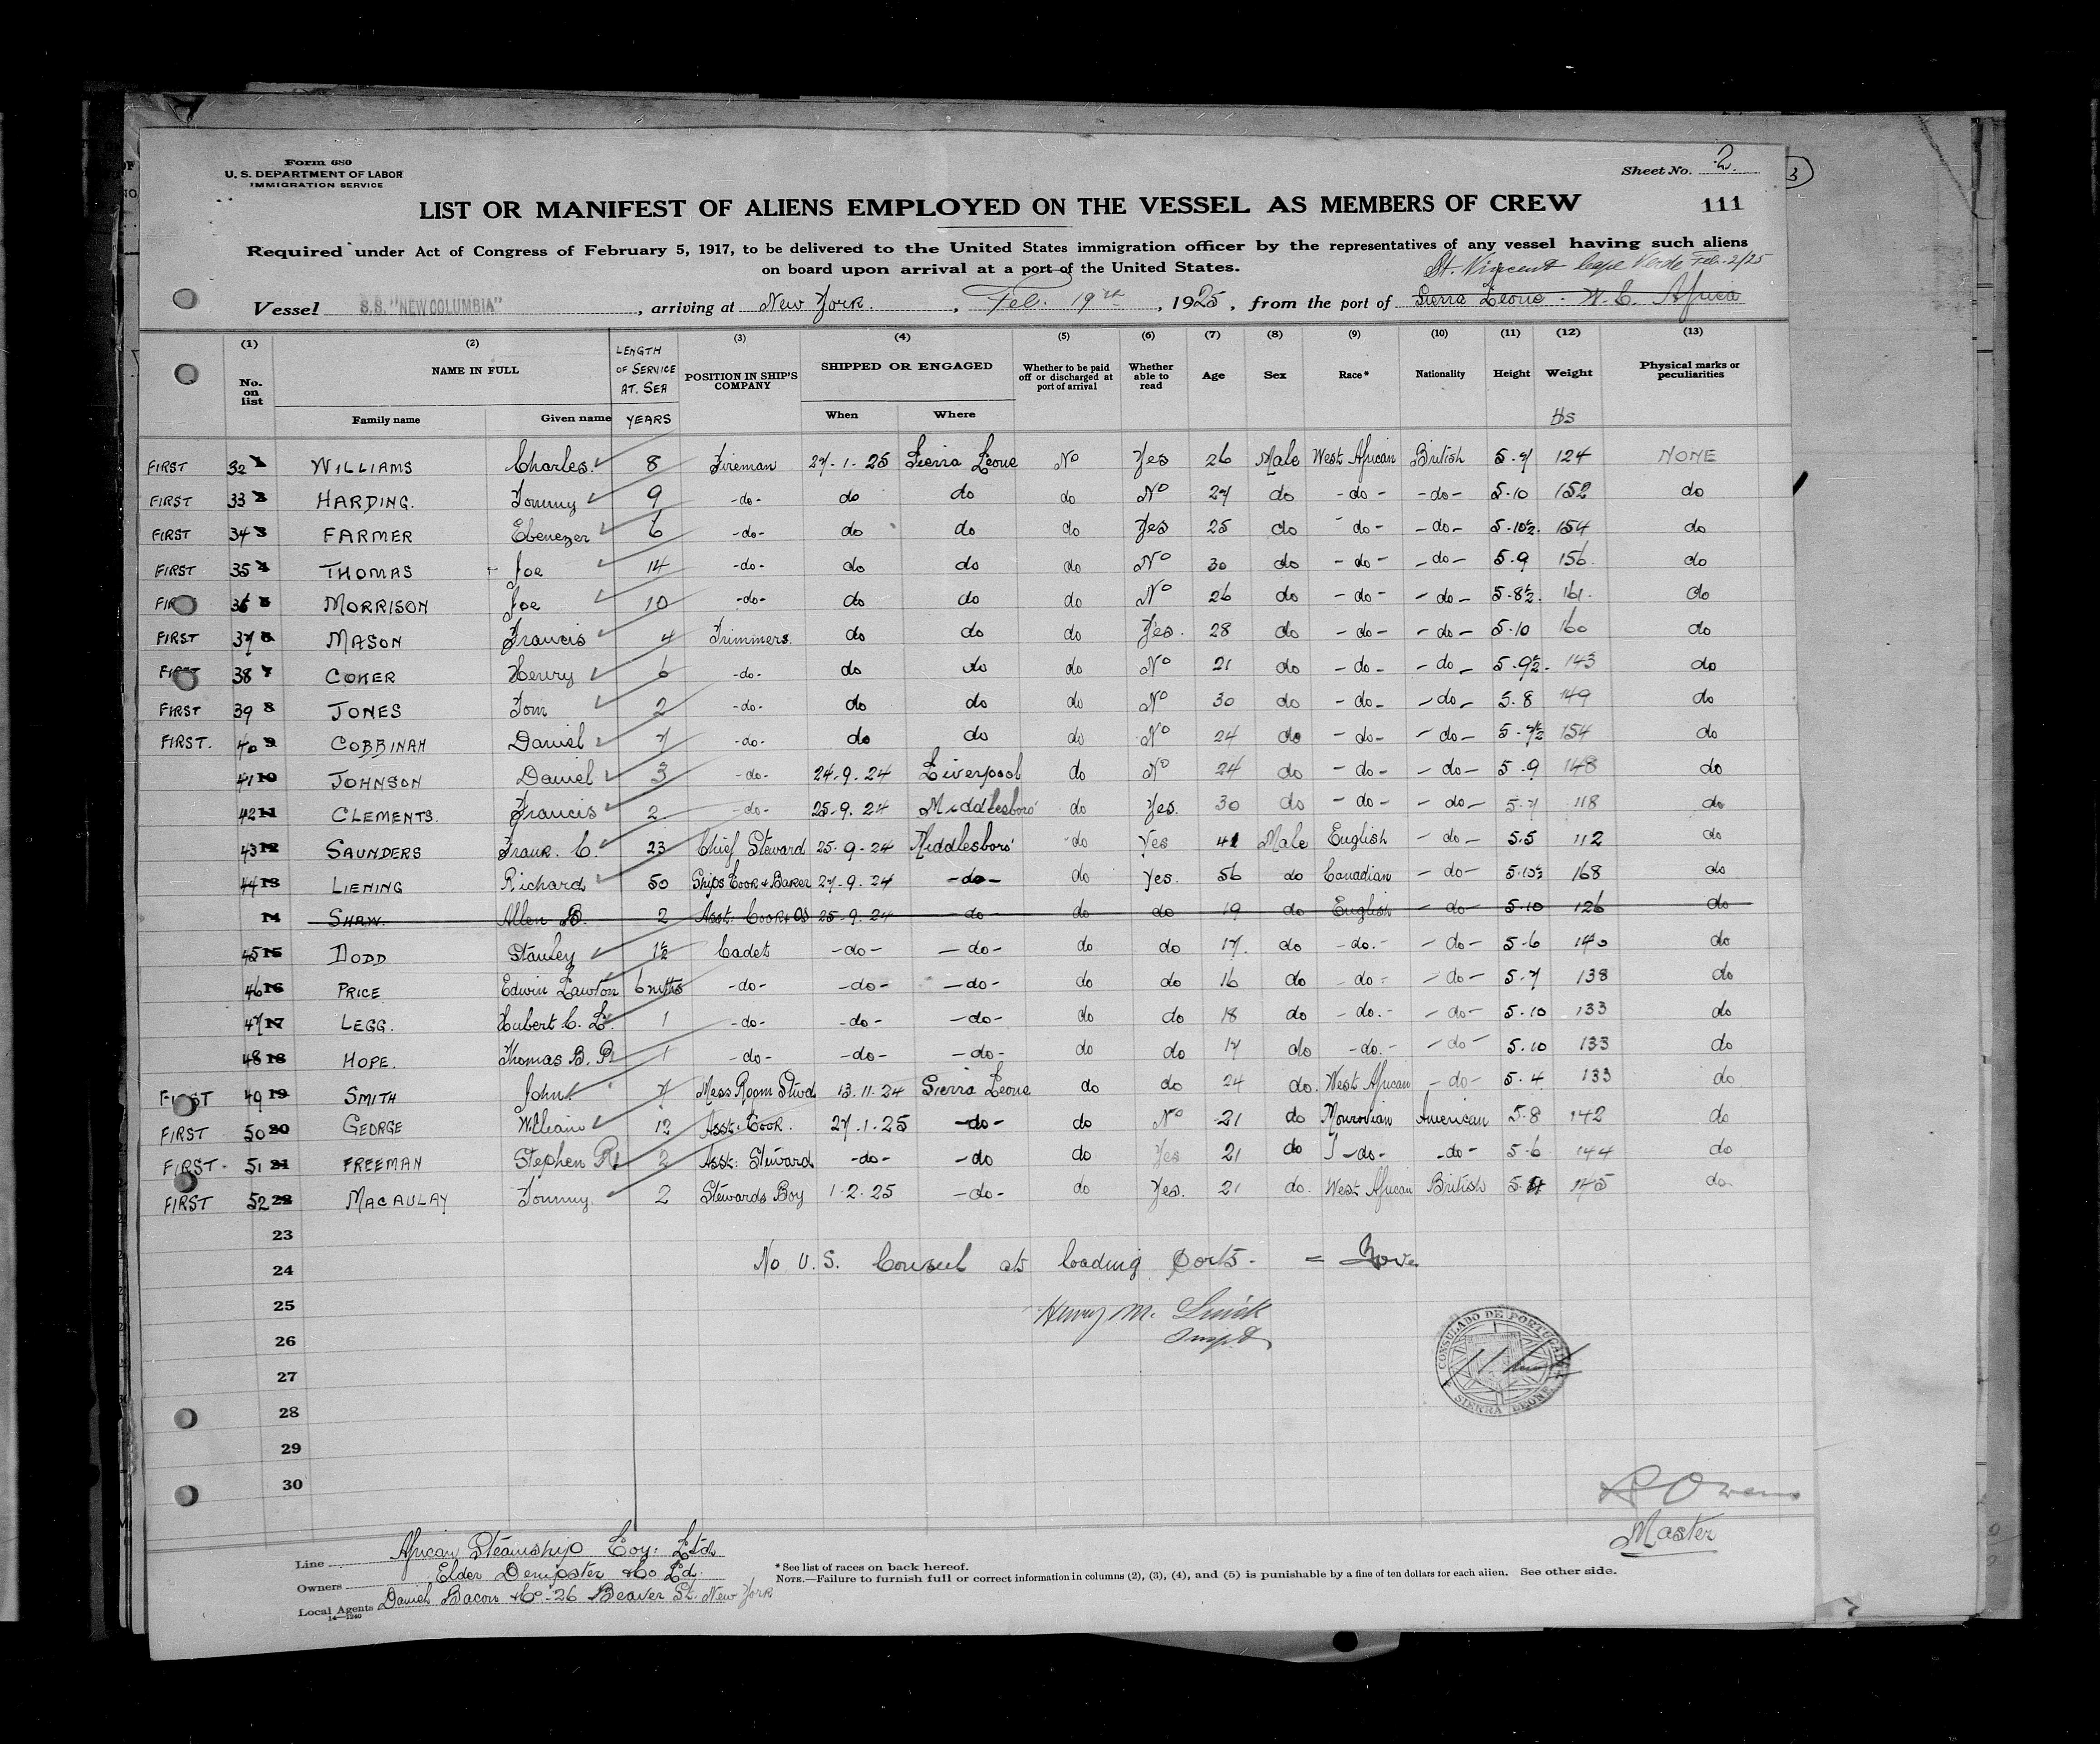 Form 680
U. S. DEPARTMENT OF LABOR
IMMIGRATION SERVICE
Sheet No. 2.
3
LIST OR MANIFEST OF ALIENS EMPLOYED ON THE VESSEL AS MEMBERS OF CREW
111
Required under Act of Congress of February 5, 1917, to be delivered to the United States immigration officer by the representatives of any vessel having such aliens
on board upon arrival at a port of the United States.
St. Vincent Cape Verde Feb. 2/25
Vessel S.S. "NEW COLUMBIA", arriving at New York., Feb. 19th, 1925, from the port of Sierra Leone - W. C. Africa
(1) (2) (3) (4) (5) (6) (7) (8) (9) (10) (11) (12) (13)
No. on list NAME IN FULL LENGTH OF SERVICE AT. SEA POSITION IN SHIP'S COMPANY SHIPPED OR ENGAGED Whether to be paid off or discharged at port of arrival Whether able to read Age Sex Race* Nationality Height Weight Physical marks or peculiarities
Family name Given name YEARS When Where lbs
FIRST 32 1 WILLIAMS Charles. 8 Fireman 27-1-25 Sierra Leone No Yes 26 Male West African British 5-7 124 NONE
FIRST 33 2 HARDING. Tommy 9 -do- do do do No 27 do -do- -do- 5-10 152 do
FIRST 34 3 FARMER Ebenezer 6 -do- do do do Yes 25 do -do- -do- 5-10½. 154 do
FIRST 35 4 THOMAS Joe 14 -do- do do do No 30 do -do- -do- 5-9 156. do
FIRST 36 5 MORRISON Joe 10 -do- do do do No 26 do -do- -do- 5-8½. 161. do
FIRST 37 6 MASON Francis 4 Trimmers. do do do Yes. 28 do -do- -do- 5-10 160 do
FIRST 38 7 COKER Henry 6 -do- do do do No 21 do -do- -do- 5-9½. 143 do
FIRST 39 8 JONES Tom 2 -do- do do do No 30 do -do- -do- 5.8 149 do
FIRST. 40 9 COBBINAH Daniel 7 -do- do do do No 24 do -do- -do- 5-7½ 154 do
41 10 JOHNSON Daniel 3 -do- 24.9.24 Liverpool do No 24 do -do- -do- 5.9 148 do
42 11 CLEMENTS. Francis 2. -do- 25-9.24 Middlesboro' do Yes. 30 do -do- -do- 5-7 118 do
43 12 SAUNDERS Frank. C. 23 Chief Steward 25-9-24 Middlesboro' do Yes 41 Male English -do- 5.5 112 do
44 13 LIENING Richard 50 Ships Cook & Baker 27-9.24 -do- do Yes. 56 do Canadian -do- 5.10½ 168 do
14 SHAW. Allen B. 2 Asst. Cook & OS 25-9-24 -do- do do 19 do English -do- 5-10 126 do
45 15 DODD Stanley 1½ Cadet -do- -do- do do 17. do -do.- -do- 5-6 140 do
46 16 PRICE Edwin Lawton 6 mths -do- -do- -do- do do 16 do -do- -do- 5-7 138 do
47 17 LEGG. Hubert C. L. 1 -do- -do- -do- do do 18 do -do.- -do- 5.10 133 do
48 18 HOPE. Thomas B. R. 1 -do- -do- -do- do do 17 do -do.- -do- 5.10 133 do
FIRST 49 19 SMITH John 7 Mess Room Stwd 13.11.24 Sierra Leone do do 24 do. West African -do- 5.4. 133 do
FIRST 50 20 GEORGE William 12 Asst. Cook. 27.1.25 -do- do No 21 do Monrovian American 5.8 142 do
FIRST. 51 21 FREEMAN Stephen R. 2 Asst: Steward -do- -do do Yes 21 do -do- -do- 5-6 144 do
FIRST 52 22 MACAULAY Tommy. 2 Stewards Boy 1-2.25 -do- do Yes. 21 do. West African British 5.4 145 do.
23
24 No U.S. Consul at loading ports -
25 Henry M.
26
27 CONSULADO DE PORTUGAL
28 SIERRA LEONE
29
30
R Owens
Master
Line African Steamship Coy: Ltd.
Owners Elder Dempster & Co Ld.
Local Agents Daniel Bacon & Co - 26 Beaver St. New York
14—1240
* See list of races on back hereof.
NOTE.—Failure to furnish full or correct information in columns (2), (3), (4), and (5) is punishable by a fine of ten dollars for each alien. See other side.